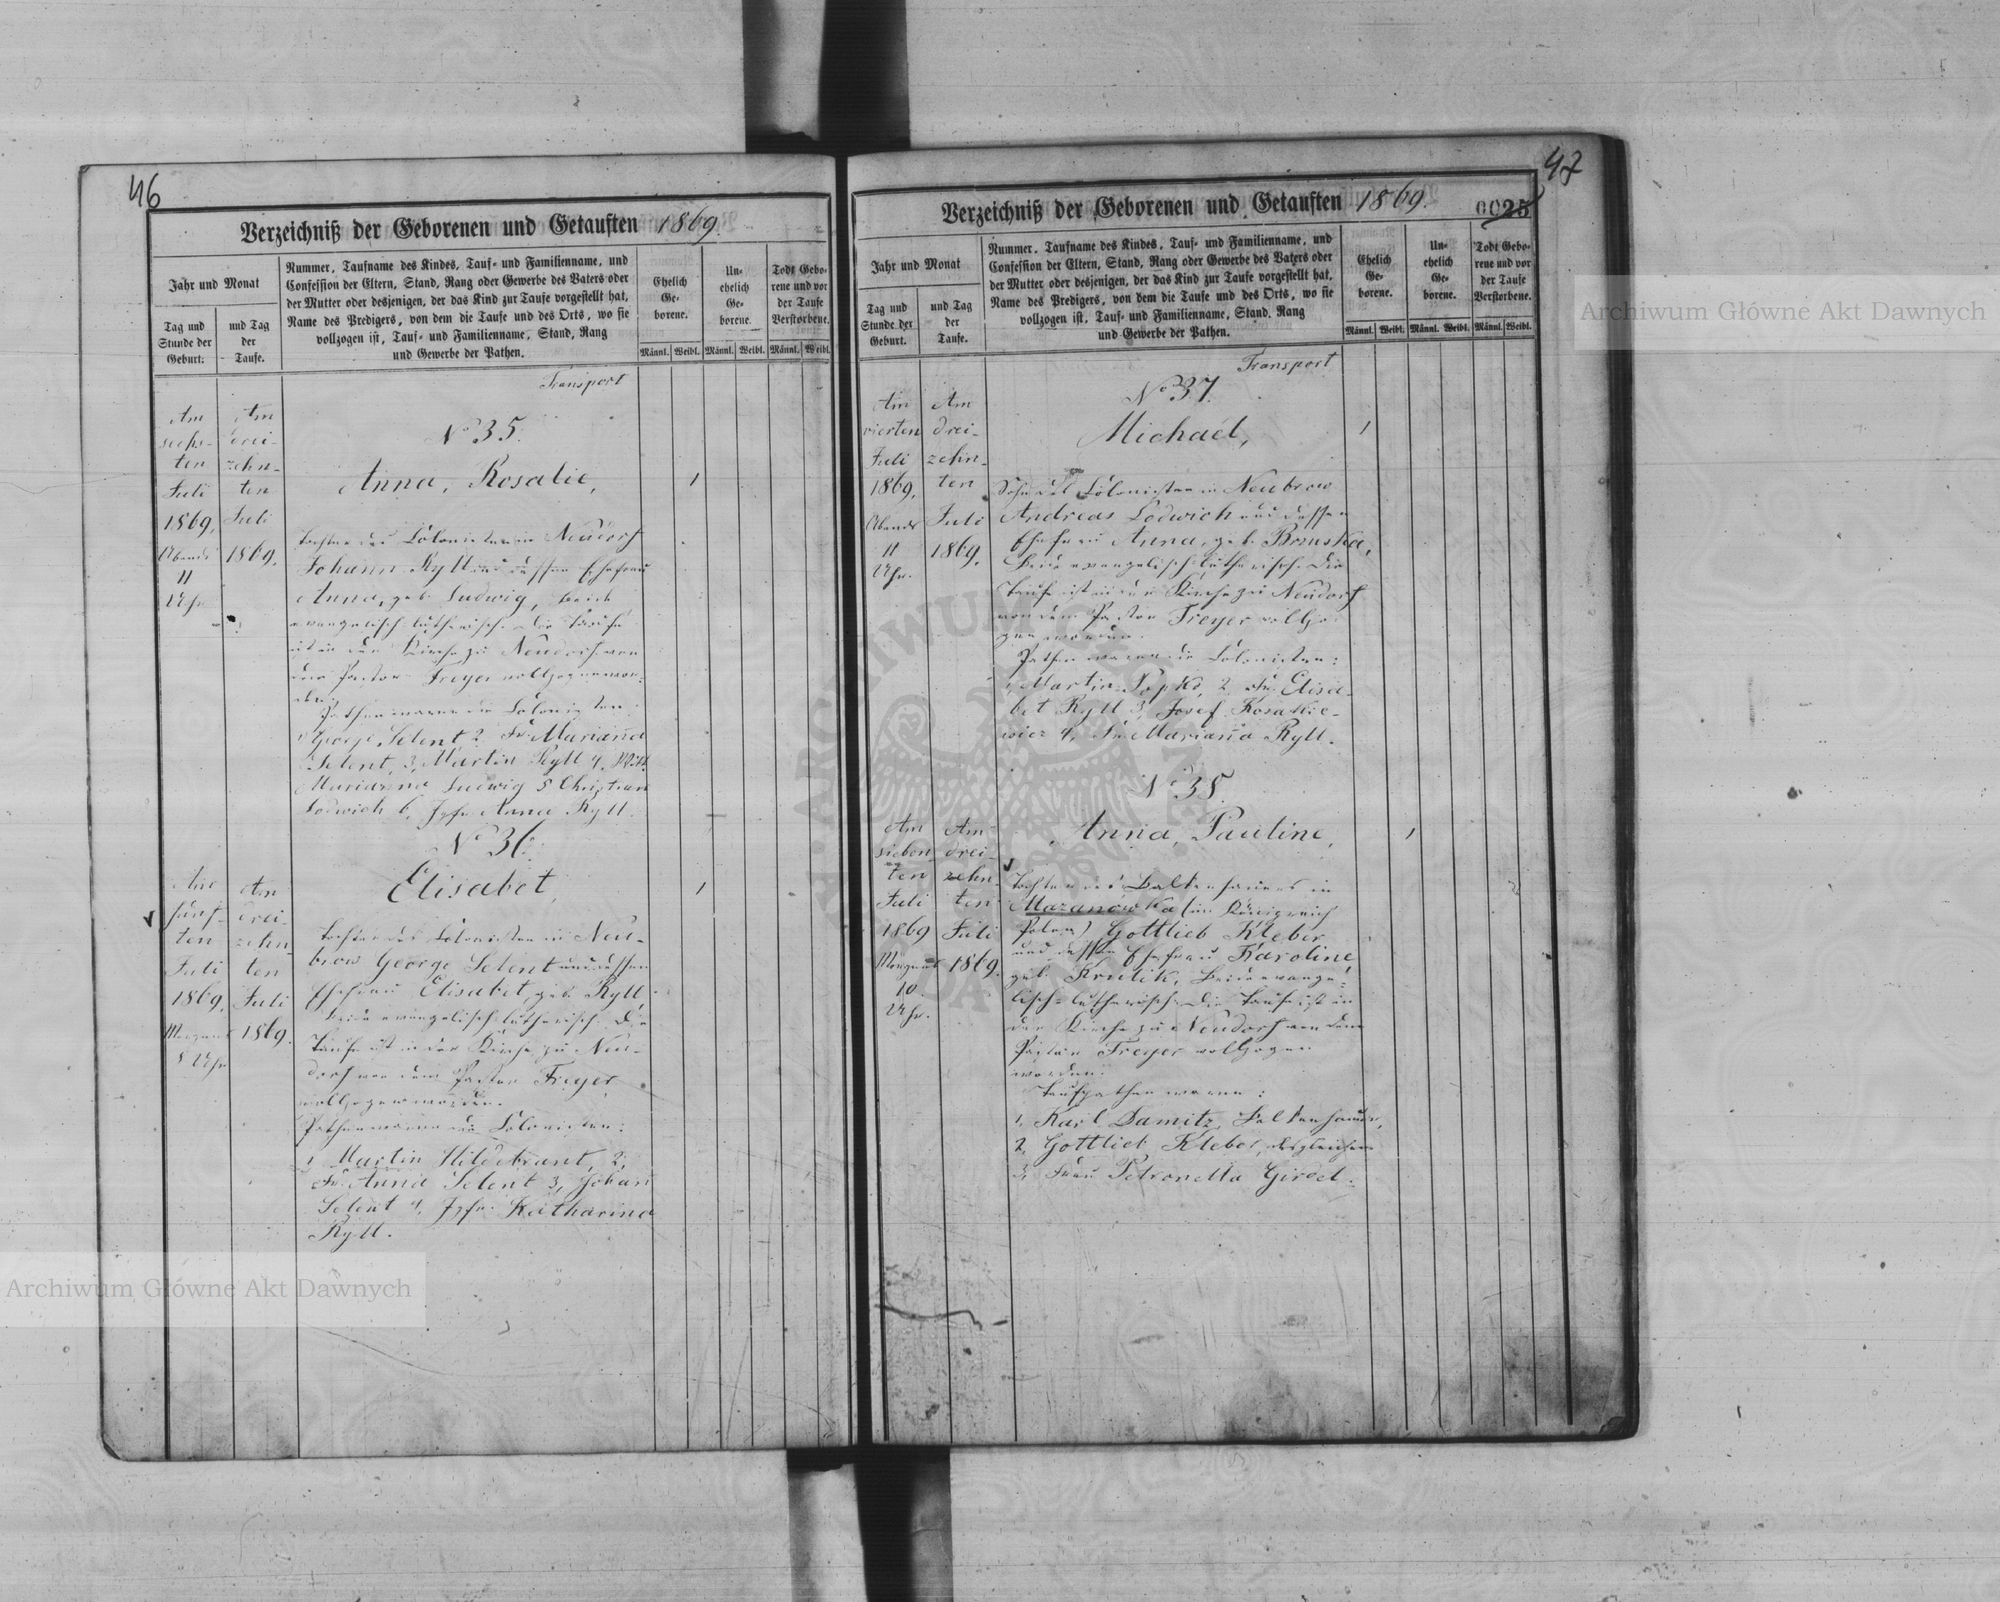 46
Verzeichniß der Geborenen und Getauften 1869.
Jahr und Monat
Tag und
Stunde der
Geburt.
und Tag
der
Taufe.
Nummer, Taufname des Kindes, Tauf- und Familienname, und
Confession der Eltern, Stand, Rang oder Gewerbe des Vaters oder
der Mutter oder desjenigen, der das Kind zur Taufe vorgestellt hat,
Name des Predigers, von dem die Taufe und des Orts, wo sie
vollzogen ist, Tauf- und Familienname, Stand, Rang
und Gewerbe der Pathen.
Ehelich
Ge-
borene.
Un-
ehelich
Ge-
borene.
Todt Gebo-
rene und vor
der Taufe
Verstorbene.
Männl. Weibl. Männl. Weibl. Männl. Weibl.
Transport
Am
sechs-
ten
Juli
1869,
Abends
11
Uhr
Am
drei-
zehn-
ten
Juli
1869.
No 35.
Anna, Rosalie,
1
Tochter des Colonisten in Neudorf
Johann Ryll und dessen Ehefrau
Anna, geb. Ludwig, beide
evangelisch-lutherisch. Die Taufe
ist in der Kirche zu Neudorf von
dem Pastor Freyer vollzogen wor-
den.
Pathen waren die Colonisten:
1, George Selent 2, Fr. Marianna
Selent, 3, Martin Ryll 4,
Marianna Ludwig 5 Christian
Lodwich 6, Jgfr. Anna Ryll.
No 36.
Am
fünf-
ten
Juli
1869,
Morgens
5 Uhr
Am
drei-
zehn-
ten
Juli
1869.
Elisabet,
1
Tochter des Colonisten in Neu-
brow George Selent und dessen
Ehefrau Elisabet, geb. Ryll,
beide evangelisch-lutherisch. Die
Taufe ist in der Kirche zu Neu-
dorf von dem Pastor Freyer
vollzogen worden.
Pathen waren die Colonisten:
1, Martin Hildebrant, 2,
Fr. Anna Selent 3, Johan
Selent 4, Jgfr. Katharina
Ryll.
47
Verzeichniß der Geborenen und Getauften 1869.
0025
Jahr und Monat
Tag und
Stunde der
Geburt.
und Tag
der
Taufe.
Nummer, Taufname des Kindes, Tauf- und Familienname, und
Confession der Eltern, Stand, Rang oder Gewerbe des Vaters oder
der Mutter oder desjenigen, der das Kind zur Taufe vorgestellt hat,
Name des Predigers, von dem die Taufe und des Orts, wo sie
vollzogen ist, Tauf- und Familienname, Stand, Rang
und Gewerbe der Pathen.
Ehelich
Ge-
borene.
Un-
ehelich
Ge-
borene.
Todt Gebo-
rene und vor
der Taufe
Verstorbene.
Männl. Weibl. Männl. Weibl. Männl. Weibl.
Transport
No 37.
Am
vierten
Juli
1869,
Abends
11
Uhr.
Am
drei-
zehn-
ten
Juli
1869.
Michael,
1
Sohn des Colonisten in Neubrow
Andreas Lodwich und dessen
Ehefrau Anna, geb. Bruska,
beide evangelisch-lutherisch. Die
Taufe ist in der Kirche zu Neudorf
von dem Pastor Freyer vollzo-
gen worden.
Pathen waren die Colonisten:
1, Martin Popko, 2, Fr. Elisa-
bet Ryll 3, Josef Kosakie-
wicz 4, Fr. Marianna Ryll.
No 38.
Am
sieben-
ten
Juli
1869
Morgens
10.
Uhr.
Am
drei-
zehn-
ten
Juli
1869.
Anna, Pauline,
1
Tochter des Balkenhauers in
Mazanowka (im Königreich
Polen) Gottlieb Kleber
und dessen Ehefrau Karoline
geb. Krulik, beide evange-
lisch-lutherisch. Die Taufe ist in
der Kirche zu Neudorf von dem
Pastor Freyer vollzogen
worden.
Taufpathen waren:
1, Karl Damitz, Balkenhauer,
2, Gottlieb Kleber, desgleichen
3, Frau Petronella Girdel.
Archiwum Główne Akt Dawnych
Archiwum Główne Akt Dawnych